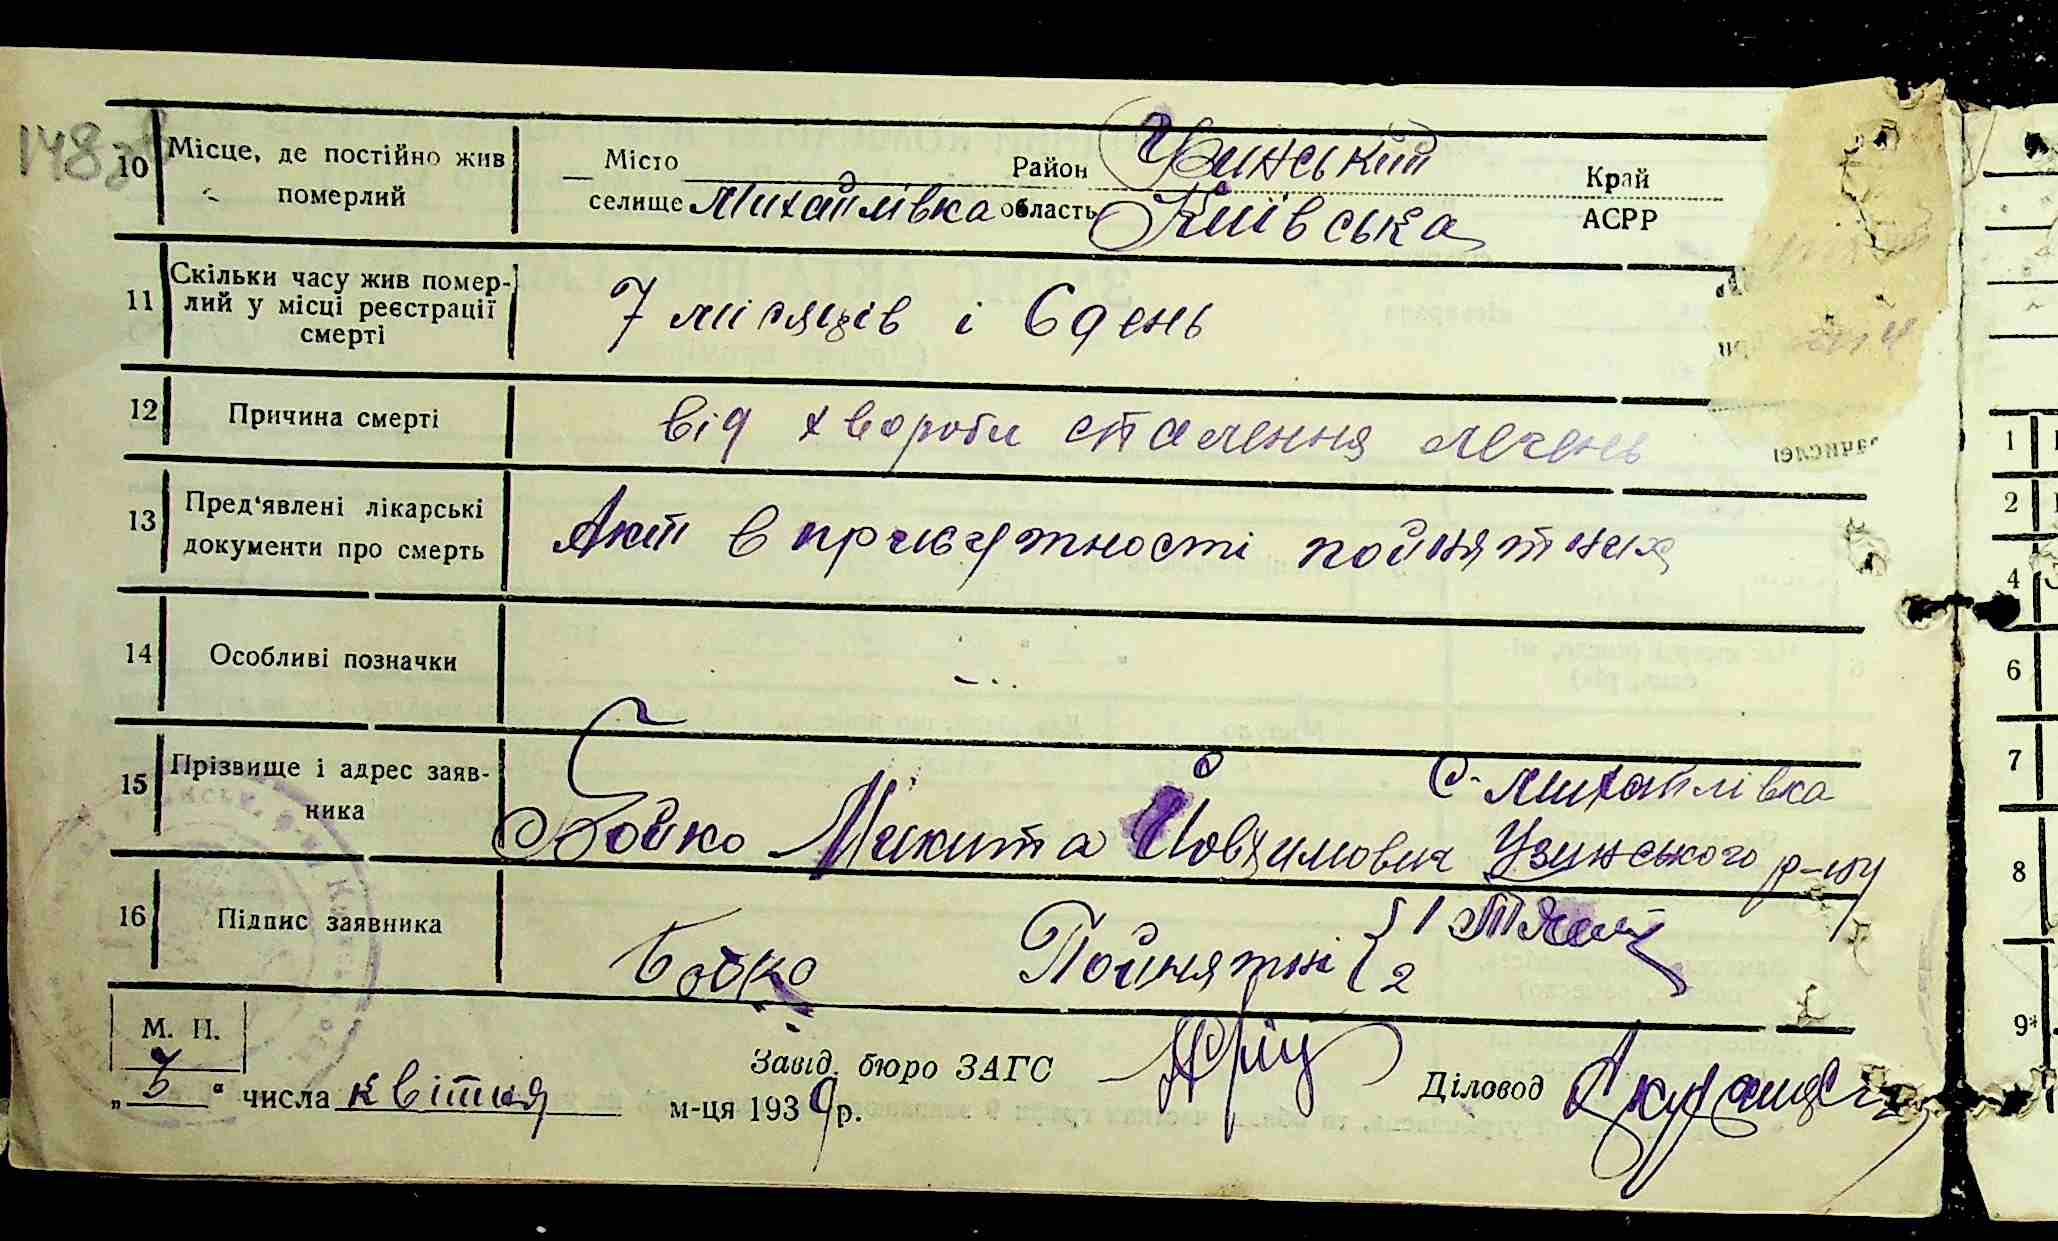 148
10 Місце, де постійно жив померлий
Місто Район Узинський Край
селище Михайлівка область Київська АСРР
11 Скільки часу жив помер-
лий у місці реєстрації
смерті
7 місяців і 6 день
12 Причина смерті
від хвороби спалення легень
13 Пред'явлені лікарські
документи про смерть
Акт в присутності пойнятних
14 Особливі позначки
15 Прізвище і адрес заяв-
ника
с. Михайлівка
Бойко Микита Йовхимович Узинського р-ну
16 Підпис заявника
Бойко Пойнятні { 1
2
М. П.
Завід. бюро ЗАГС Діловод
„ 3 " числа квітня м-ця 1939 р.
1
2
4
6
7
8
9*